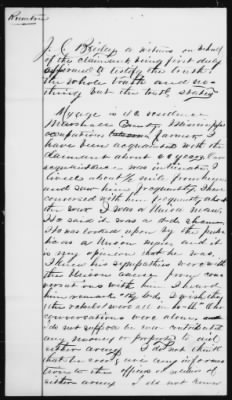 J. C. Bridges a witness on behalf
of the claimant being first duly
affirmed to testify the truth
the whole truth and no-
thing but the truth states
My age is residence
Marshall County Mississippi
occupation farmer I
have been acquainted with the
claimant about years Our
acquaintance was intimate I
lived about mile from him
and saw him frequently I have
conversed with him frequently about
the war I was a Union man
He said it was a shame
He was looked upon by the pub-
lic as a Union man and it
is my opinion that he was
I think his sympathies were with
the Union cause from con-
versations with him I heard
him remark he wish
the rebels were all in hell Our
conversations were alone I
do not suppose he ever contributed
any money or property to aid
either army I do not think
that he ever gave any informa-
tion to the officers or soldiers of
either army I do not know